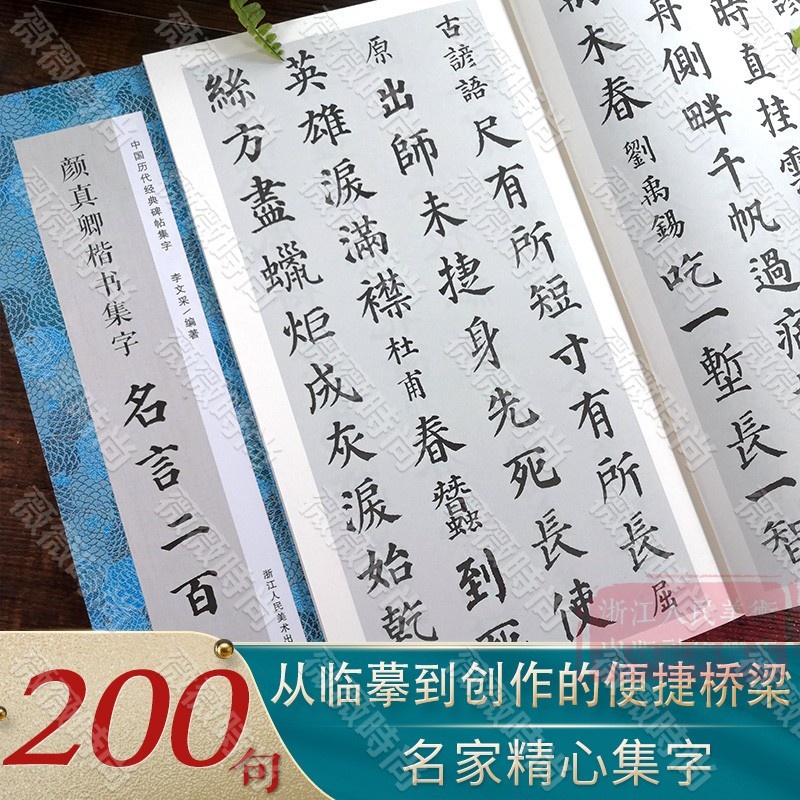 時直挂雲
舟側畔千帆過病
木春 劉禹錫 吃一塹長一智
古諺語 尺有所短寸有所長 屈
原 出師未捷身先死長使
英雄淚滿襟 杜甫 春蠶到死
絲方盡蠟炬成灰淚始乾
中国历代经典碑帖集字 李文采/编著
颜真卿楷书集字 名言二百
浙江人民美术出
浙江人民美術
200句
从临摹到创作的便捷桥梁
名家精心集字
薇薇時尚